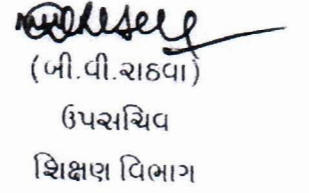 (બી.વી.રાઠવા)
ઉપસચિવ
શિક્ષણ વિભાગ